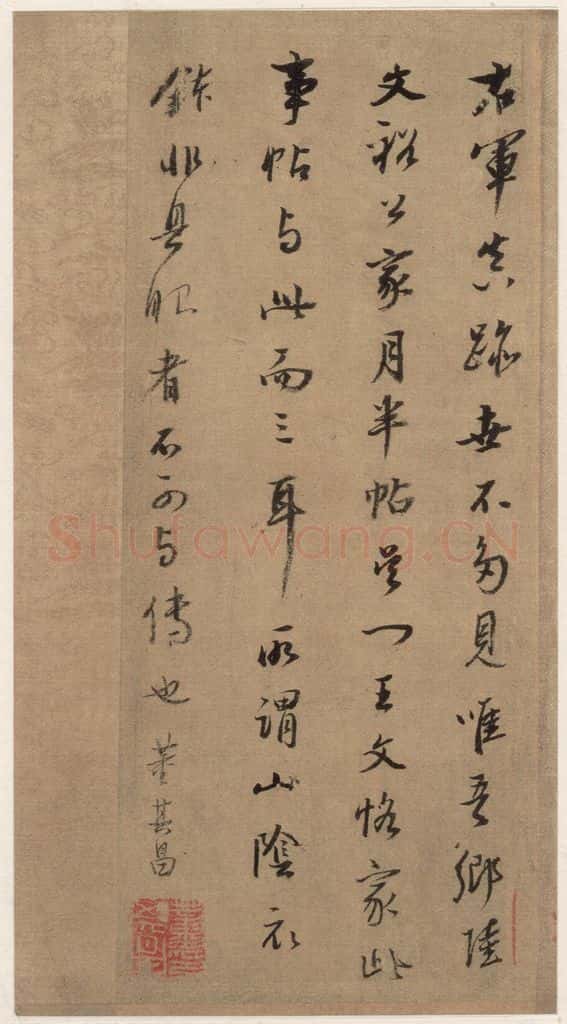 右軍真跡世不多見唯吾鄉陸
文裕公家月半帖吳门王文恪家此
事帖与此而三耳所謂山陰衣
鉢非具眼者不可与傳也董其昌
Shufawang.CN